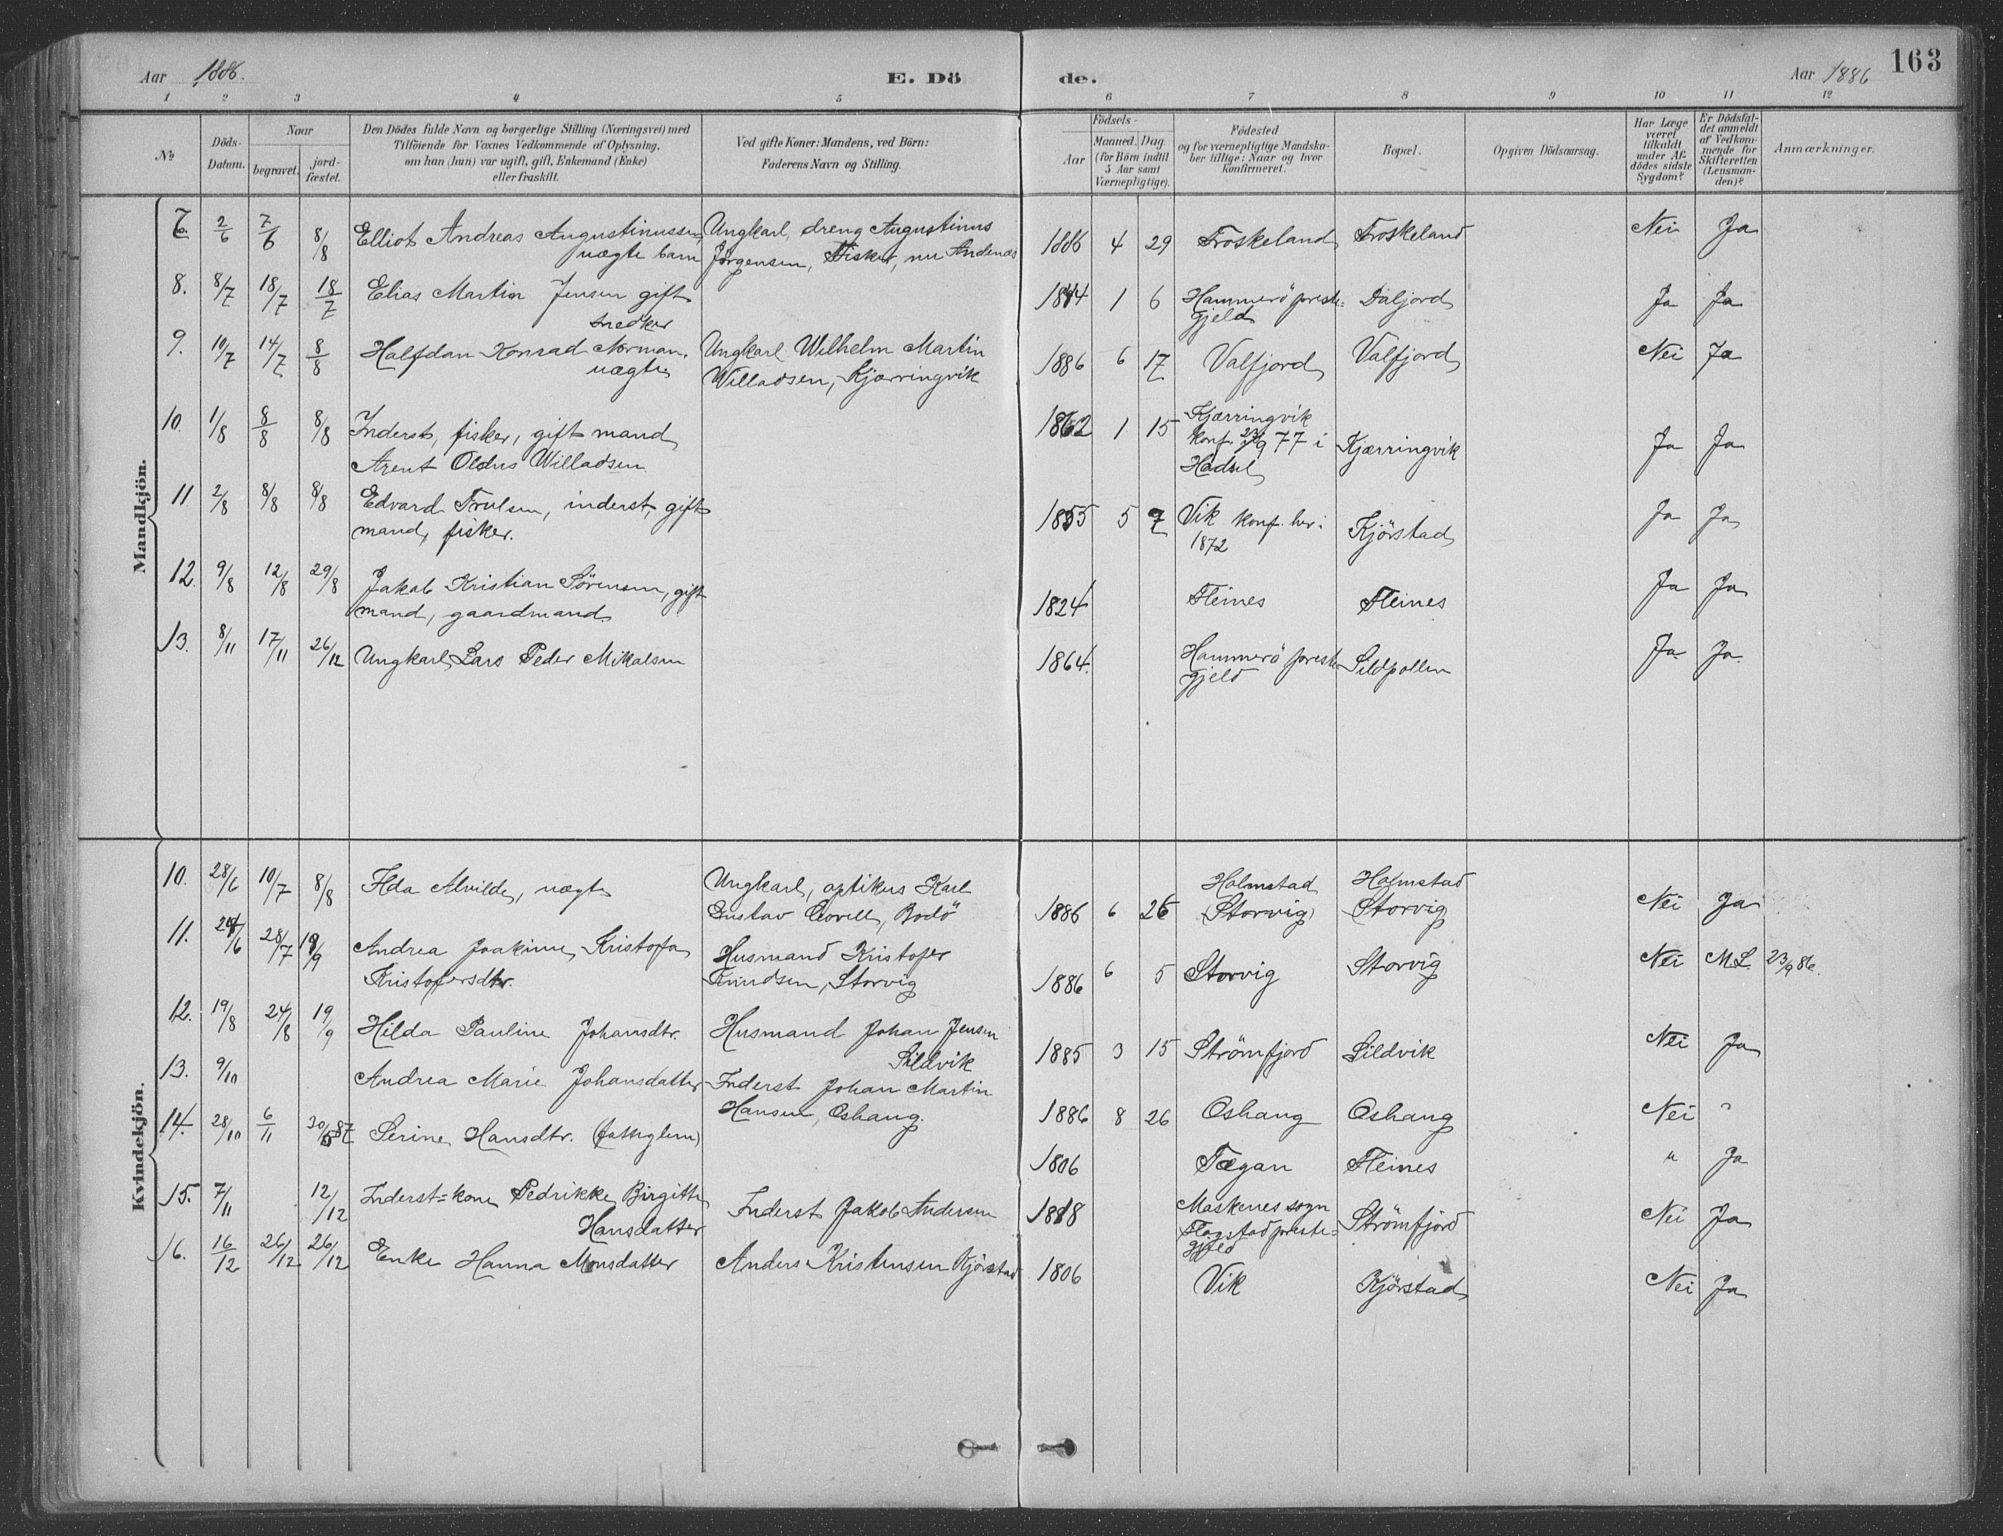 163
Aar 1886. E. Dö de. Aar 1886
1 2 3 4 5 6 7 8 9 10 11 12
No
Döds-Datum.
Naar
begravet.
jord-fæstet.
Den Dödes fulde Navn og borgerlige Stilling (Næringsvei) med
Tilföiende for Voxnes Vedkommende af Oplysning,
om han (hun) var ugift, gift, Enkemand (Enke)
eller fraskilt.
Ved gifte Koner: Mandens, ved Börn:
Faderens Navn og Stilling.
Födsels-
Aar
Maaned. Dag.
(for Börn indtil
5 Aar samt
Værnepligtige).
Födested
og for værnepligtige Mandska-
ber tillige: Naar og hvor
konfirmeret.
Bopæl.
Opgiven Dödsaarsag.
Har Læge
været
tilkaldt
under Af-
dödes sidste
Sygdom?
Er Dödsfal-
det anmeldt
af Vedkom-
mende for
Skifteretten
(Lensman-
den)?
Anmærkninger.
Mandkjön.
7. 2/6 7/6 8/8 Elliot Andreas Augustinussen, Ungkarl, dreng Augustinus 1886 4 29 Froskeland Froskeland Nei Ja
uægte barn Jørgensen, Fisker, nu Andenæs
8. 8/7 18/7 18/7 Elias Martin Jensen gift 1844 1 6 Hammerö preste- Daljord Ja Ja
snedker gjeld
9. 10/7 14/7 8/8 Halfdan Konrad Norman. Ungkarl Wilhelm Martin 1886 6 17 Valfjord Valfjord Nei Ja
uægte Willadsen, Kjærringvik
10. 1/8 8/8 8/8 Inderst, fisker, gift mand 1862 1 15 Kjærringvik
konf. 23/9 77 i Kjærringvik Ja Ja
Arent Oldus Willadsen Hadsel
11 2/8 8/8 8/8 Edvard Trulsen, inderst, gift 1855 5 7 Vik konf. her i Kjörstad Ja Ja
mand, fisker. 1872
12. 9/8 12/8 29/8 Jakob Kristian Sörensen, gift 1824 Fleines Fleines Ja Ja
mand, gaardmand.
13. 8/11 17/11 26/12 Ungkarl Lars Peder Mikalsen 1864. Hammerö preste- Sildpollen Ja Ja
gjeld
Kvindekjön.
10. 28/6 10/7 8/8 Ilda Alvilde, uægte Ungkarl, optikus Karl Holmstad Holmstad
Gustav 
, Bodö 1886 6 26 (Storvig) Storvig Nei Ja
11. 24/6 28/7 19/9 Andrea Joakime Kristofa Husmand Kristofer 1886 6 5 Storvig Storvig Nei M.L. 23/9 86.
Kristofersdtr. Knudsen, Storvig
12. 19/8 24/8 19/9 Hilda Pauline Johansdtr. Husmand Johan Jensen 1885 3 15 Strömfjord Sildvik Nei Ja
Sildvik
13. 9/10 Andrea Marie Johansdatter Inderst Johan Martin 1886 8 26 Oshang Oshang Nei "
Hansen, Oshang.
14. 28/10 6/11 30/5 87 Serine Hansdtr. (fattiglem) 1806 Tægan Fleines " Ja
15. 7/11 12/12 Inderst-kone Pedrikke Birgitte Inderst Jakob Andersen 1818 Moskenes sogn Strömfjord Nei Ja
Hansdatter Flagstad preste-
gjeld
16. 16/12 26/12 26/12 Enke Hanna Monsdatter Anders Kristensen Kjörstad 1806 Vik Kjörstad Nei Ja